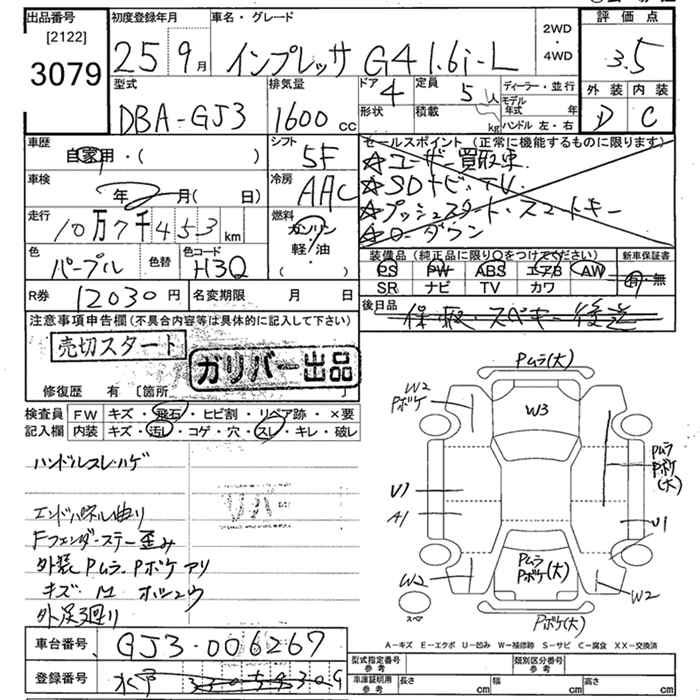 出品番号 初度登録年月 車名・グレード 2WD・4WD 評価点
[2122]
3079 25 9月 インプレッサ G4 1.6i-L 3.5
型式 排気量 ドア 4 定員 5人 ディーラー・並行 外装 内装
DBA-GJ3 1600cc 形状 積載 kg モデル年式 年 D C
ハンドル 左・右
車歴 シフト セールスポイント (正常に機能するものに限ります)
自家用・( ) 5F ☆ユーザー買取車
車検 冷房 ☆SDナビ、TV
年 月 ( 日) AAC ☆プッシュスタート・スマートキー
走行 燃料 ☆ローダウン
10万7千453km ガソリン
軽/油
・( )
色 色替 色コード 装備品 (純正品に限り○をつけてください) 新車保証書
パープル H3Q PS PW ABS エアB AW 有・無
SR ナビ TV カワ
R券 12030円 名変期限 月 日 後日品
保・取・スペキー 後送
注意事項申告欄 (不具合内容等は具体的に記入して下さい)
売切スタート
ガリバー出品
修復歴 有 [箇所 ]
検査員 FW キズ・飛石・ヒビ割・リペア跡・×要
記入欄 内装 キズ・汚レ・コゲ・穴・スレ・キレ・破レ
ハンドルスレ・ハゲ
エンドパネル曲り
Fフェンダーステー歪み
外装PムラPボケアリ
外足廻り
Pムラ(大)
W2
Pボケ
W3
Pムラ
Pボケ
(大)
U1
A1
U1
Pムラ
Pボケ(大)
W2
W2
スペア
Pボケ(大)
A-キズ E-エクボ U-凹み W-補修跡 S-サビ C-腐食 XX-交換済
車台番号 GJ3-006267
型式指定番号 参考 類別区分番号 参考
登録番号
車庫証明用 参考 長さ cm 幅 cm 高さ cm